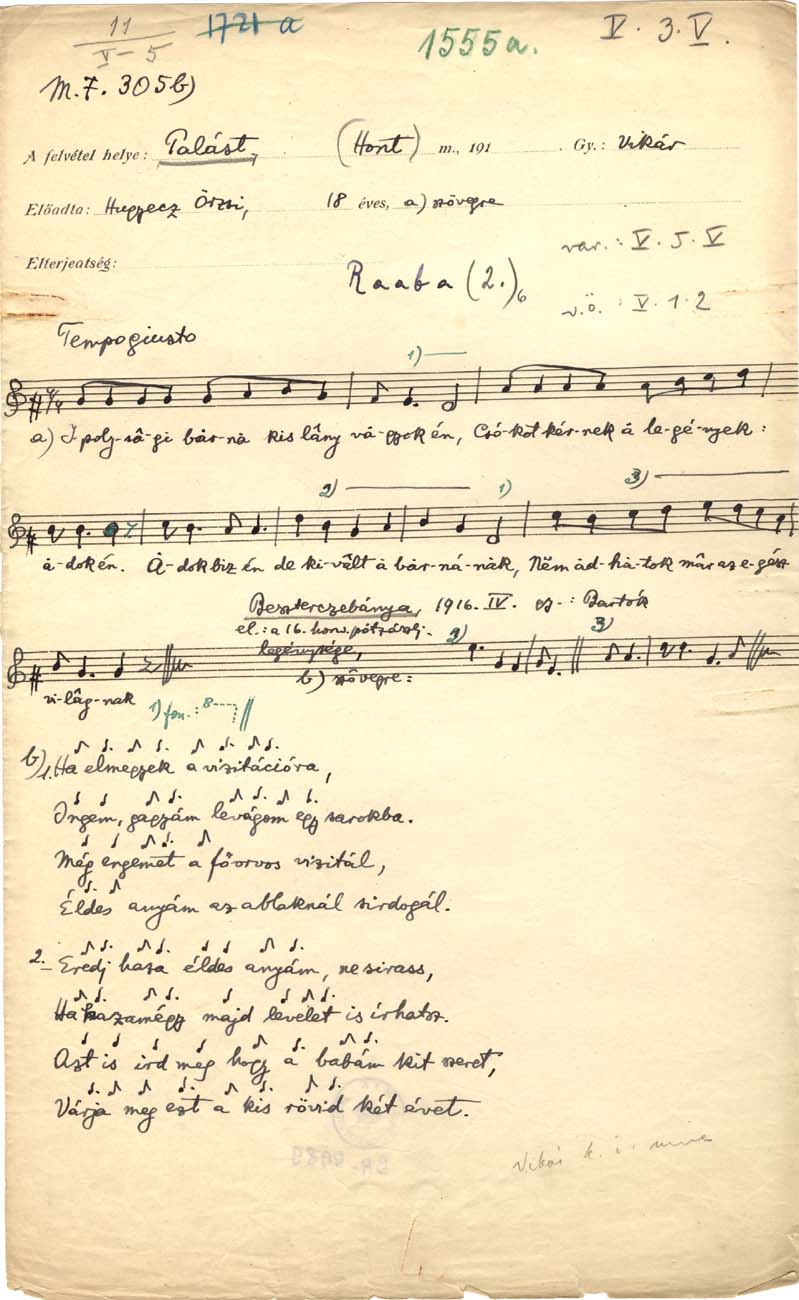 11
V-5
1721 a
1555a.
V. 3. V.
M. F. 305b)
A felvétel helye: Palást, (Hont) m., 191 . Gy.: Vikár
Előadta: Huggecz Örzsi, 18 éves, a) szövegre
var.: V. 5. V
Elterjeatség:
Raaba (2.)6
v.ö. : V. 1. 2
Tempo giusto
1)
a) I-poly-sâ-gi bár-nȧ kis lâny va-gyok én, Csó-kot kér-nek å le-gé-nyek:
2) 1) 3)
å-dok én. Å-dok biz én de ki-vâlt å bár-ná-nåk, Nëm åd-hå-tok mâr az e-gész
Beszterczebánya, 1916. IV. : Bartók
el.: a 16. honv. pótzászlj.
legénysége, 2) 3)
b) szövegre:
vi-lâg-nak
1) fon.: 8
b) 1. Ha elmegyek a vizitációra,
Ingem, gagyám levágom egy sarokba.
Még engemet a főorvos vizitál,
Éldes anyám az ablaknál sirdogál.
2. Eredj haza éldes anyám, ne sirass,
Ha hazamégy majd levelet is írhatsz.
Azt is ird meg hogy a babám kit szeret,
Várja meg ezt a kis rövid két évet.
Vikár